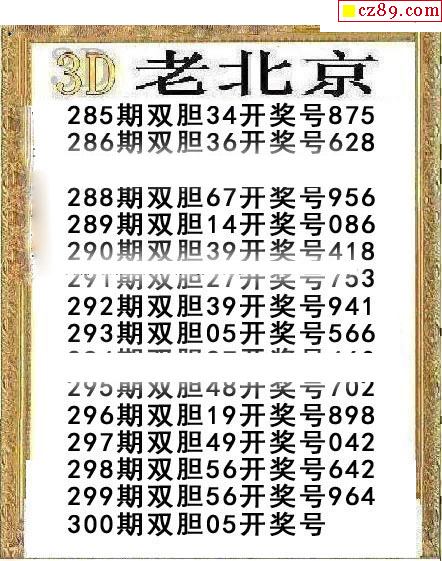 cz89.com
3D 老北京
285期双胆34开奖号875
286期双胆36开奖号628
288期双胆67开奖号956
289期双胆14开奖号086
290期双胆39开奖号418
291期双胆27开奖号753
292期双胆39开奖号941
293期双胆05开奖号566
295期双胆48开奖号702
296期双胆19开奖号898
297期双胆49开奖号042
298期双胆56开奖号642
299期双胆56开奖号964
300期双胆05开奖号